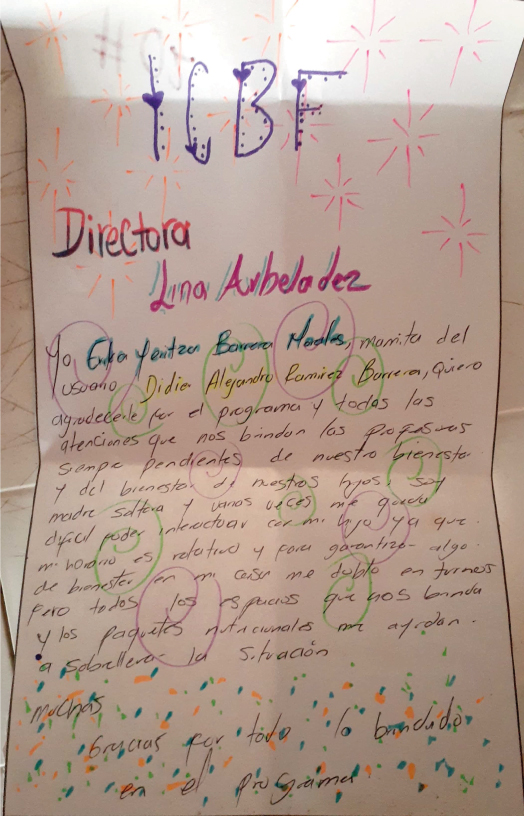 ICBF
Directora
Lina Arbeladez
Yo, Erika Yenitza Barrera Morales, mamita del
usuario Didier Alejandro Ramirez Barrera, quiero
agradecerle por el programa y todas las
atenciones que nos brindan las profesoras
siempre pendientes de nuestro bienestar
y del bienestar de nuestros hijos, soy
madre soltera y varias veces me queda
dificil poder interactuar con mi hijo ya que
mi horario es relativo y para garantizar algo
de bienestar en mi casa me doblo en turnos
Pero todos los espacios que nos brinda
y los paquetes nutricionales me ayudan
a sobrellevar la situación
Muchas
Gracias por todo lo brindado
en el programa